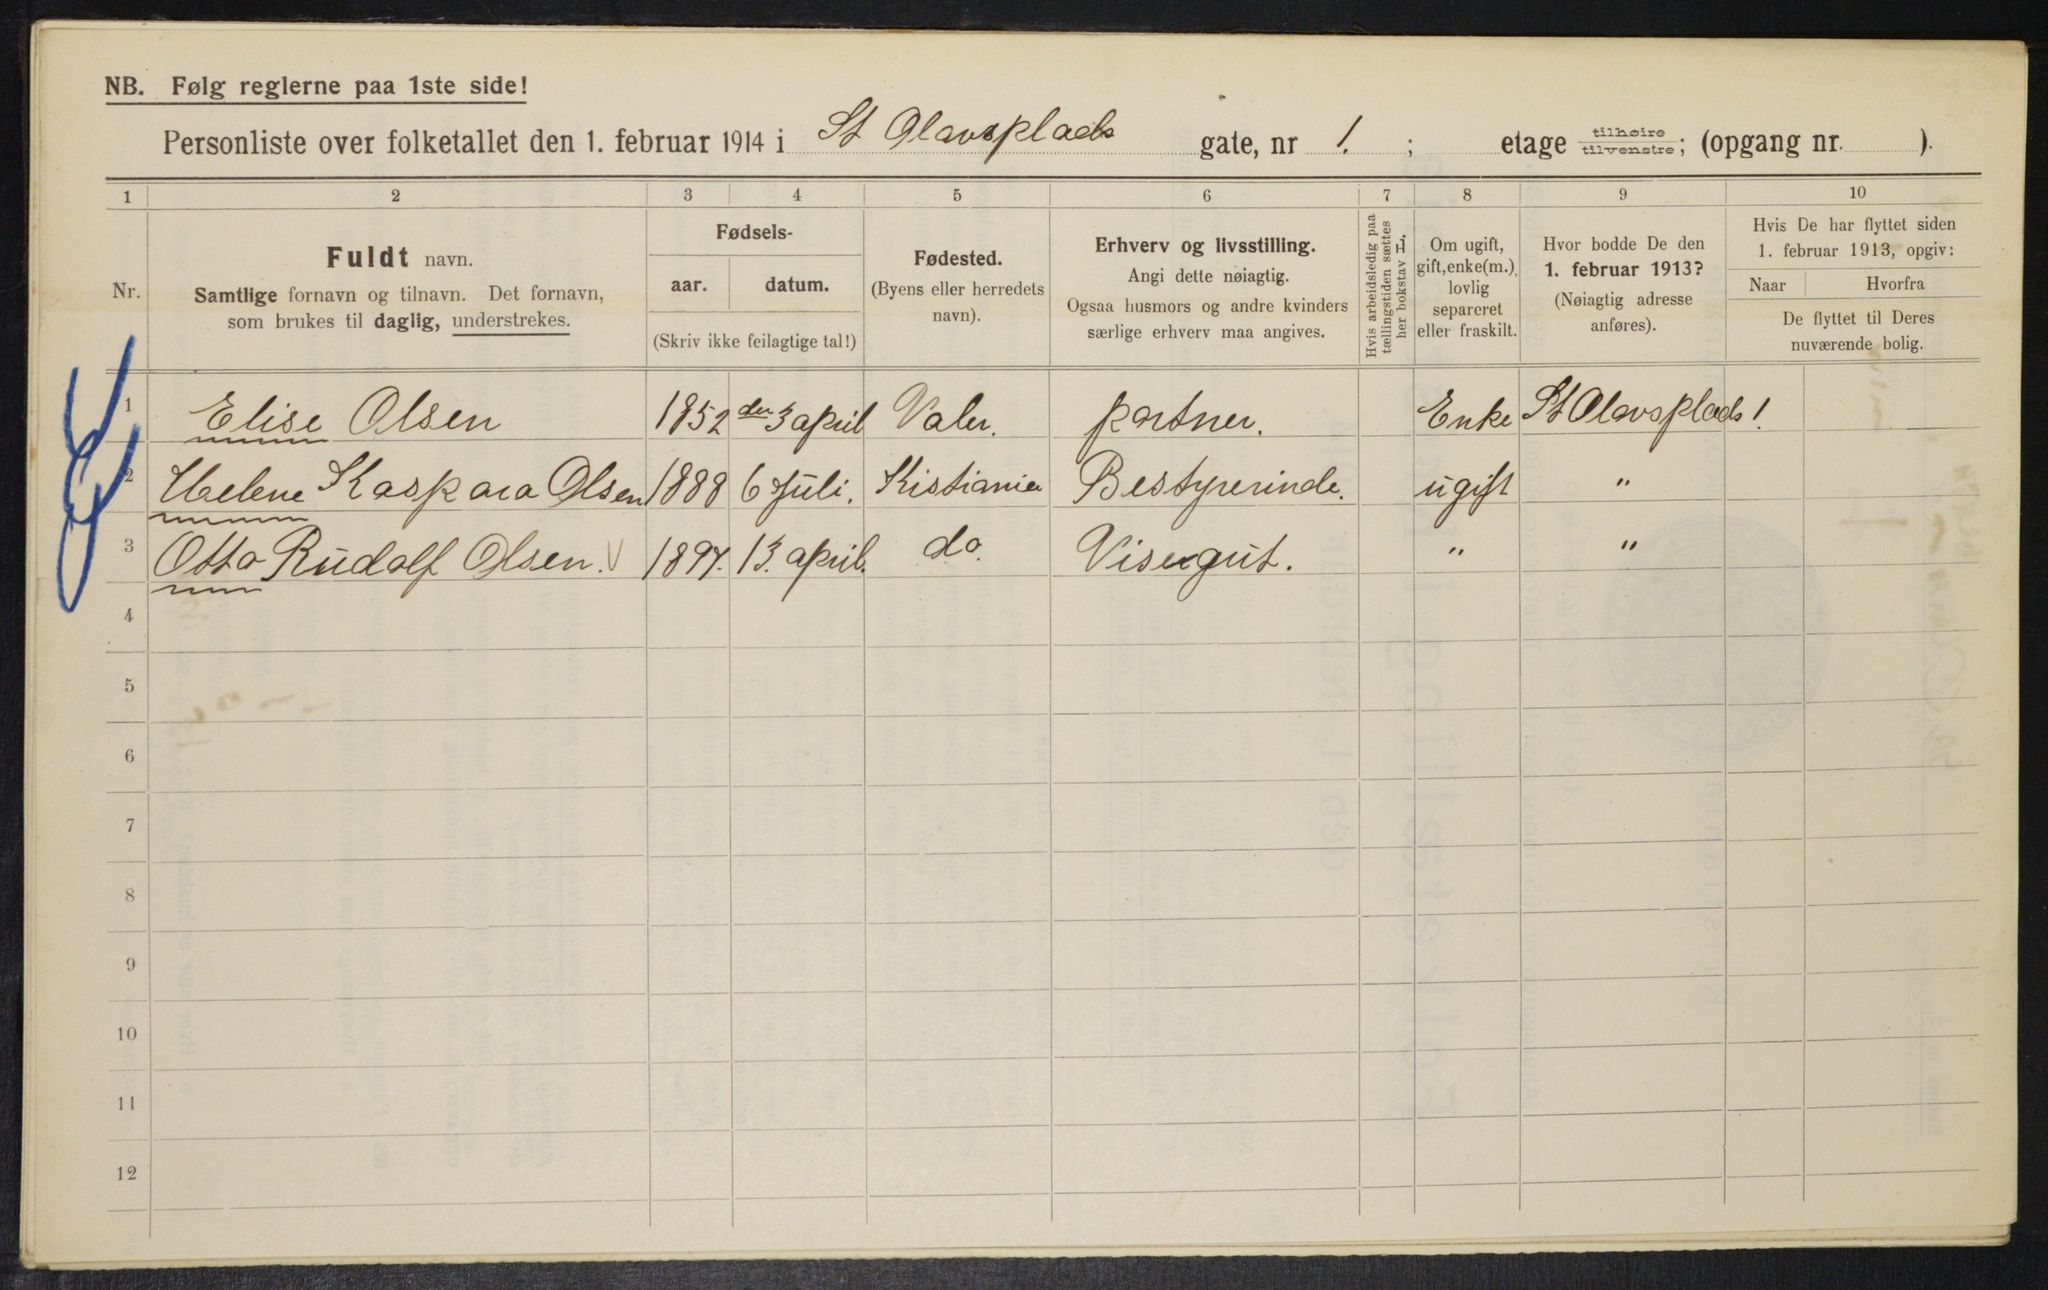 NB. Følg reglerne paa 1ste side!
Personliste over folketallet den 1. februar 1914 i St Olavsplads gate, nr 1. ; etage tilhøire tilvenstre; (opgang nr. ).
1 2 3 4 5 6 7 8 9 10
Nr.
Fuldt navn.
Samtlige fornavn og tilnavn. Det fornavn,
som brukes til daglig, understrekes.
Fødsels-
aar. datum.
(Skriv ikke feilagtige tal!)
Fødested.
(Byens eller herredets
navn).
Erhverv og livsstilling.
Angi dette nøiagtig.
Ogsaa husmors og andre kvinders
særlige erhverv maa angives.
Hvis arbeidsledig paa
tællingstiden sættes
her bokstav L.
Om ugift,
gift, enke(m.),
lovlig
separeret
eller fraskilt.
Hvor bodde De den
1. februar 1913?
(Nøiagtig adresse
anføres).
Hvis De har flyttet siden
1. februar 1913, opgiv:
Naar Hvorfra
De flyttet til Deres
nuværende bolig.
1 Elise Olsen 1852 den 3 april Valer. portner. Enke St Olavsplads 1
2 Helene Kaspara Olsen 1888 6 Juli. Kistiania Bestyrerinde. ugift "
3 Otto Rudolf Olsen. 1897. 13. april. do. Visergut. " "
4
5
6
7
8
9
10
11
12